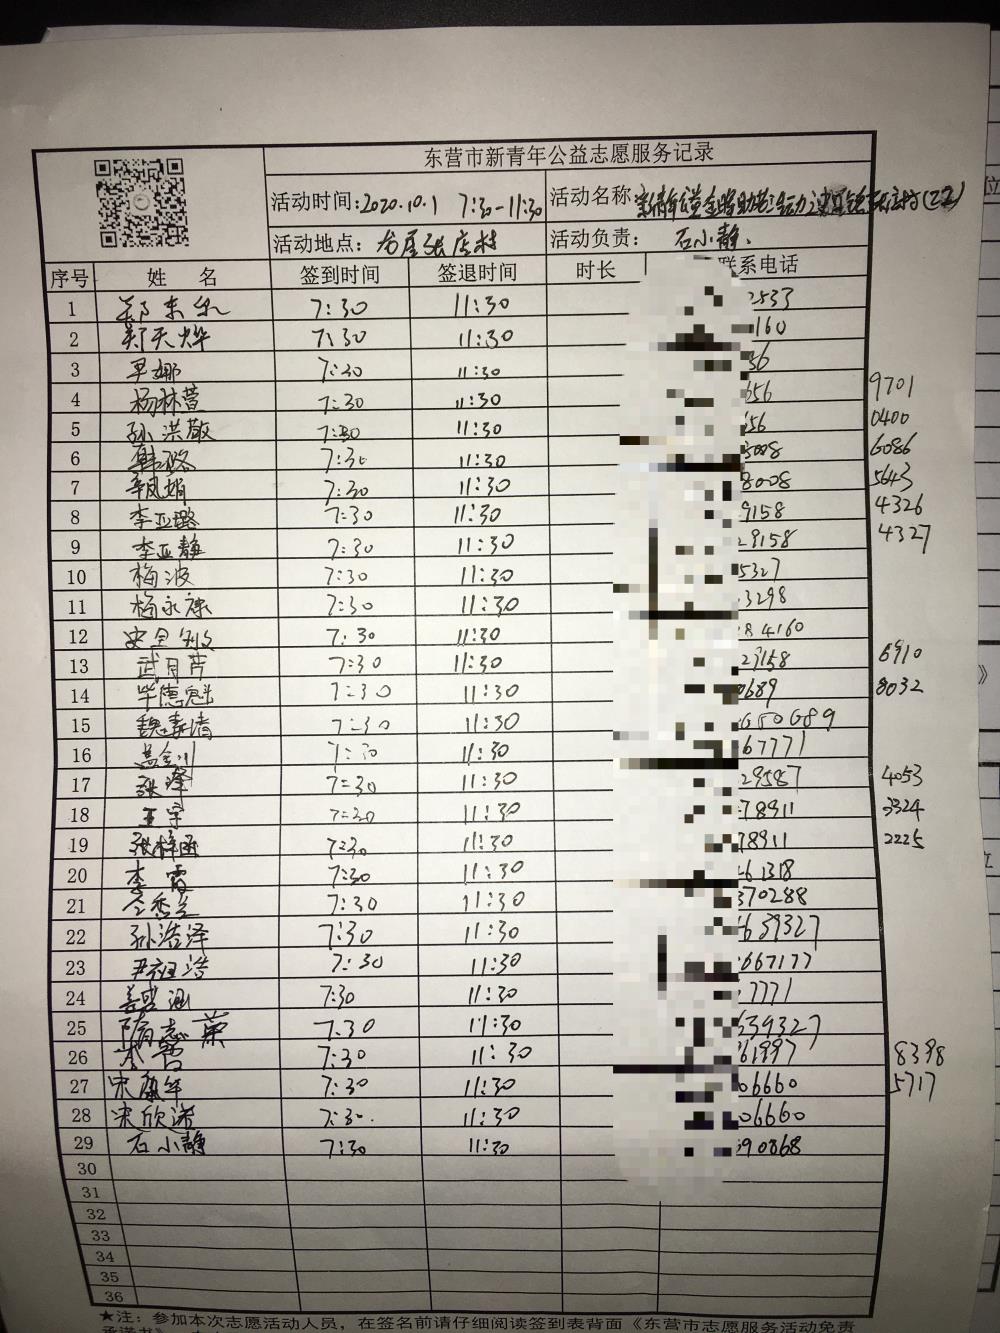 东营市新青年公益志愿服务记录
活动时间:2020.10.1 7:30-11:30 活动名称:
活动地点: 龙居张庄村 活动负责: 石小静.
序号 姓 名 签到时间 签退时间 时长 联系电话
1 郑 7:30 11:30 2533
2 郑天烨 7:30 11:30 160
3 娜 7:30 11:30 56
4 杨林萱 7:30 11:30 656 9701
5 孙洪敬 7:30 11:30 56 0400
6 韩璐 7:30 11:30 3008 6086
7 7:30 11:30 8008 5643
8 李亚璐 7:30 11:30 9158 4326
9 李亚静 7:30 11:30 29158 4327
10 梅波 7:30 11:30 5327
11 梅永禄 7:30 11:30 3298
12 安全 7:30 11:30 84160
13 武月芹 7:30 11:30 29158 6910
14 毕德魁 7:30 11:30 689 8032
15 魏 清 7:30 11:30 650689
16 7:30 11:30 67771
17 张 7:30 11:30 29587 4053
18 王宇 7:30 11:30 78911 3324
19 张梓函 7:30 11:30 78911 2225
20 李霞 7:30 11:30 61318
21 7:30 11:30 370288
22 孙浩泽 7:30 11:30 659327
23 浩 7:30 11:30 667177
24 涵 7:30 11:30 7771
25 隋 7:30 11:30 659327
26 李 7:30 11:30 61997 8398
27 宋 年 7:30 11:30 06660 5717
28 宋欣诺 7:30. 11:30 06660
29 石小静 7:30 11:30 90868
30
31
32
33
34
35
36
★注:参加本次志愿活动人员，在签名前请仔细阅读签到表背面《东营市志愿服务活动免责